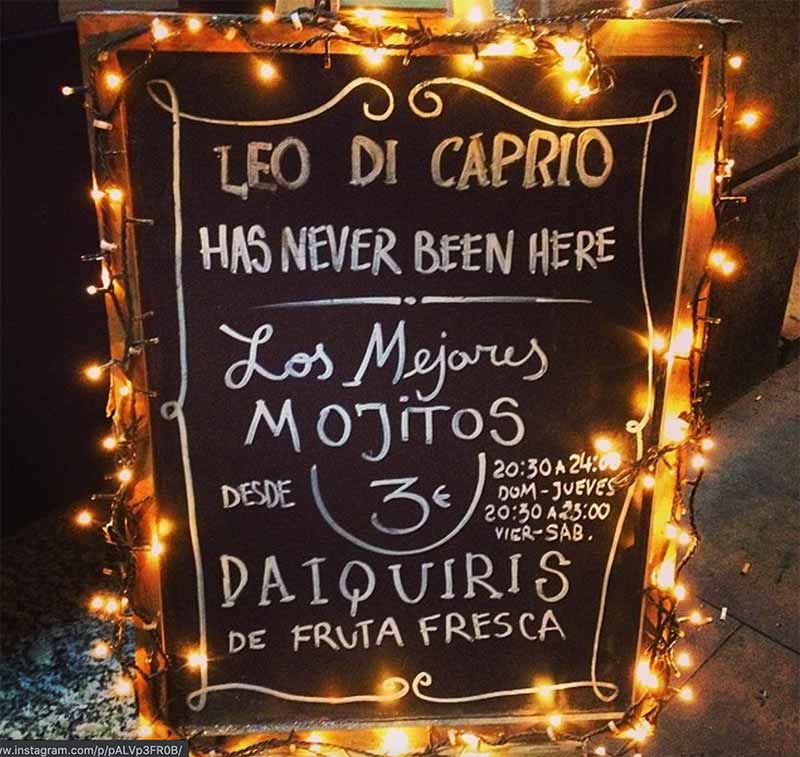 LEO DI CAPRIO
HAS NEVER BEEN HERE
Los Mejores
MOJITOS
DESDE 3€
20:30 A 24:00
DOM-JUEVES
20:30 A 23:00
VIER-SAB.
DAIQUIRIS
DE FRUTA FRESCA
ww.instagram.com/p/pALVp3FR0B/